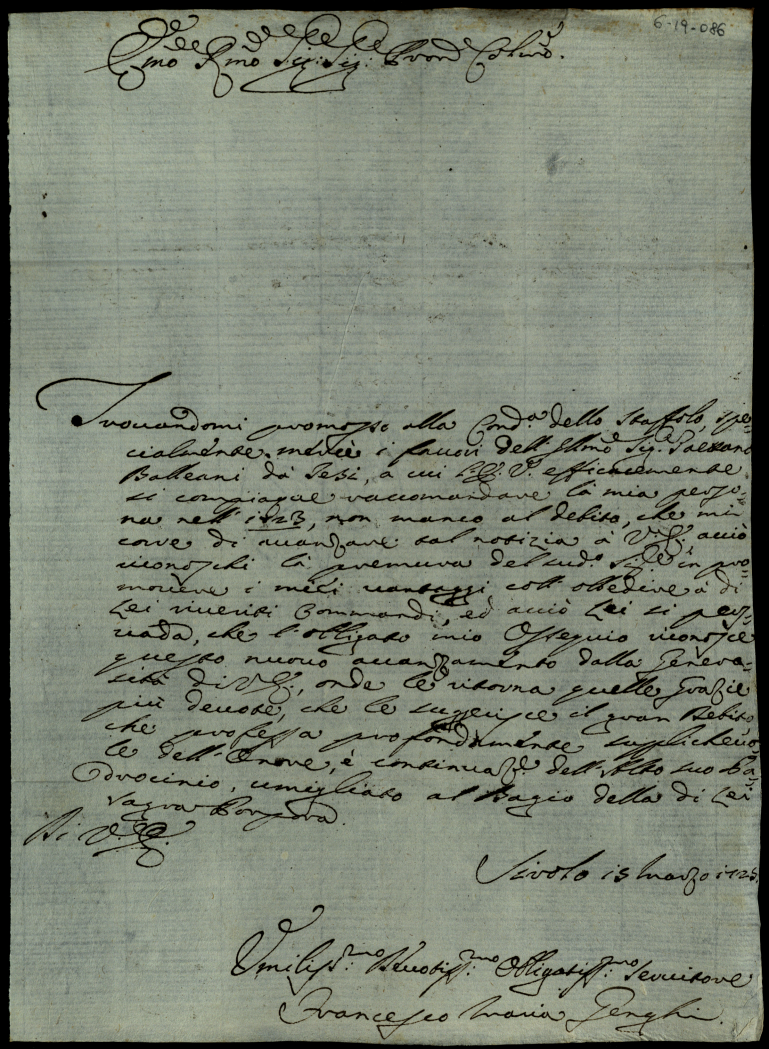 6-19-086
Em̃o Rm̃o Sig: Sig: Pron͂ Col͂mo.
Trovandomi promosso alla Cond.ª dello Staffolo, spe-
cialmente mercè i favori dell' Illm̃o Sig.
Balleani da Jesi, a cui V. E. efficacemente
si compiacque raccomandare la mia perso-
na nell' 1723, non manco al debito, che mi
corre di avanzare tal notizia à V. E. acciò
riconoschi la premura del sud.º Sig.re in pro
movere i miei vantaggi coll' obbedire à di
Lei riveriti Commandi, ed acciò Lei si per-
suada, che l'obligato mio Ossequio riconosce
questo nuovo avanzamento dalla Genero-
sità di V. E., onde le ritorna quelle Grazie
più devote, che le suggerisce il gran Debito
che professa profondamente supplichevo-
le dell' Onore, è continuaz.e dell' alto suo Pa-
drocinio, umigliato al Bagio della di Lei
Sagra Porpora.
Di V. E.
Sirolo 15 Marzo 1725
Umiliss.mo Devotiss.mo Obligatiss.mo Servitore
Francesco Maria Genghi.